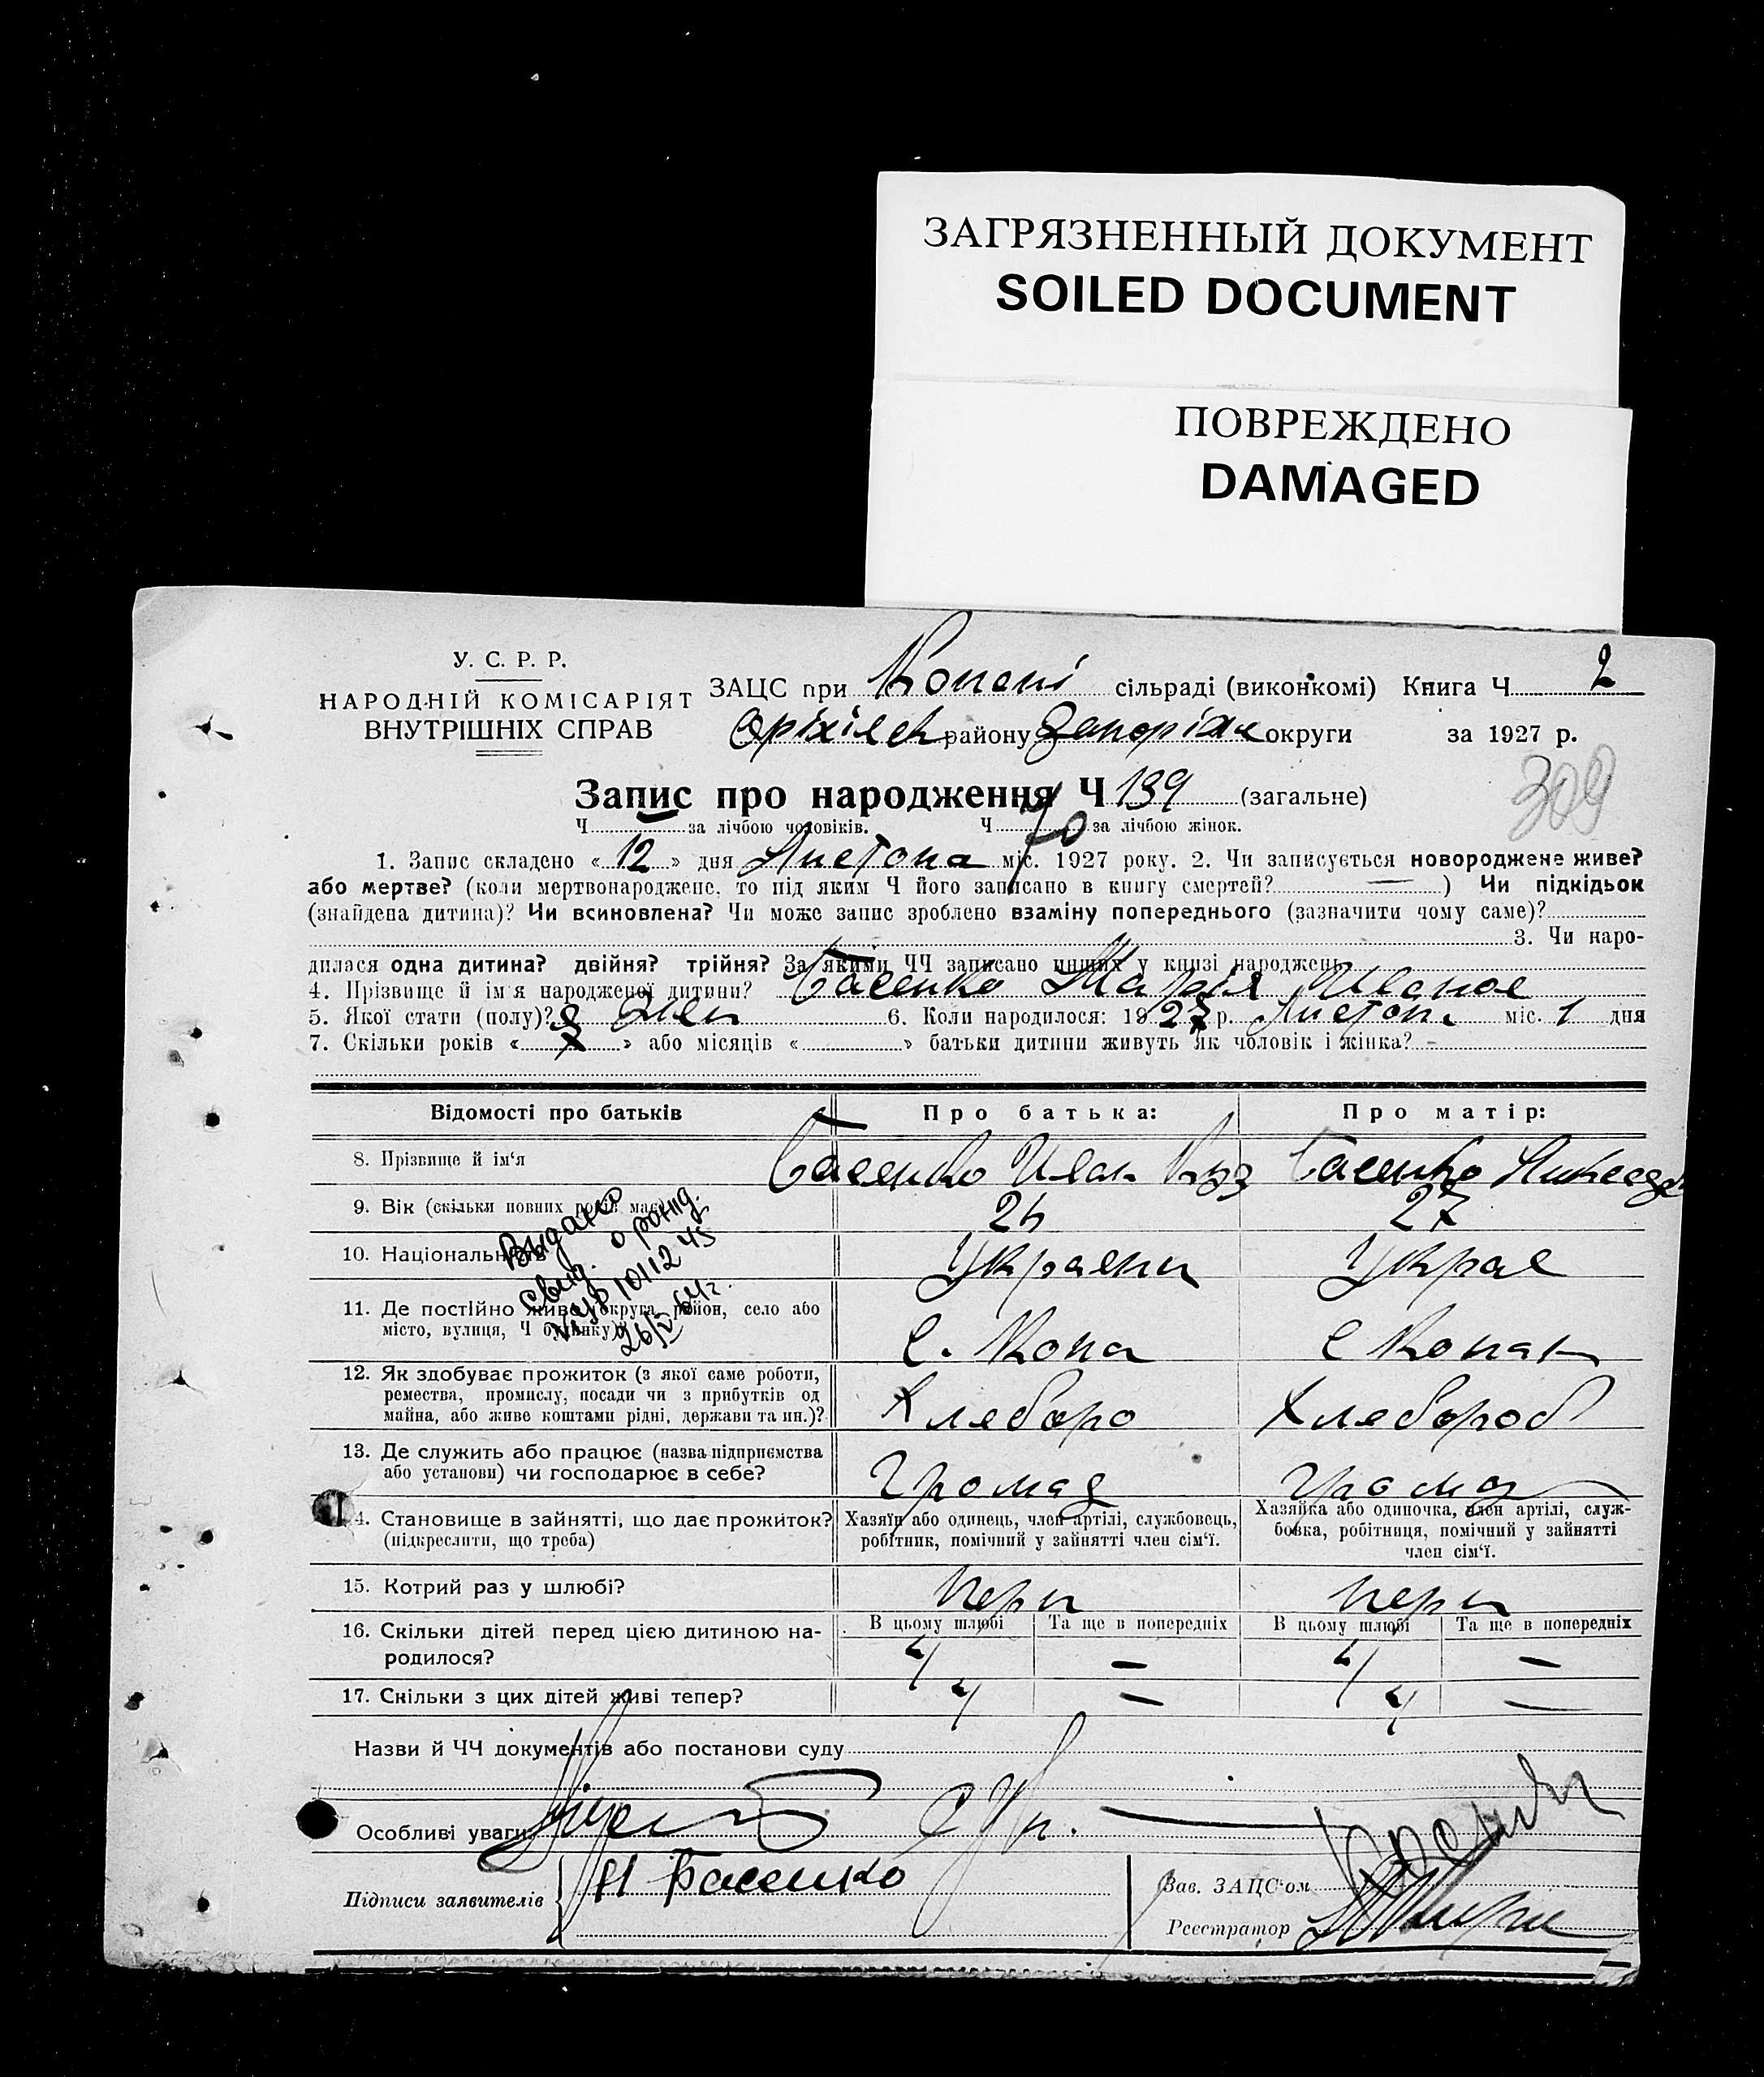 ЗАГРЯЗНЕННЫЙ ДОКУМЕНТ
SOILED DOCUMENT
ПОВРЕЖДЕНО
DAMAGED
У. С. Р. Р.
НАРОДНІЙ КОМІСАРІЯТ
ВНУТРІШНІХ СПРАВ
ЗАЦС при Копані сільраді (виконкомі) Книга Ч 2
Оріхівськ району Запоріжж округи за 1927 р.
309
Запис про народження Ч 139 (загальне)
Ч за лічбою чоловіків. Ч 70 за лічбою жінок.
1. Запис складено « 12 » дня Листопа міс. 1927 року. 2. Чи записується новороджене живе?
або мертве? (коли мертвонароджене, то під яким Ч його записано в книгу смертей? — ) Чи підкідьок
(знайдена дитина)? Чи всиновлена? Чи може запис зроблено взаміну попереднього (зазначити чому саме)?
3. Чи наро-
дилася одна дитина? двійня? трійня? За якими ЧЧ записано инших у книзі народжень
4. Прізвище й ім'я народженої дитини? Басенко Марія Иванов
5. Якої стати (полу)? жен 6. Коли народилося: 1927 р. Листопа міс. 1 дня
7. Скільки років « » або місяців « » батьки дитини живуть як чоловік і жінка? -
Відомості про батьків Про батька: Про матір:
8. Прізвище й ім'я Басенко Иван Басенко
9. Вік (скільки повних років має) 26 27
Видано
свид. о рожд.
10112 45
26/V 64 г.
10. Національність Украени Украе
11. Де постійно живе (округа, район, село або
місто, вулиця, Ч будинку)? с. Копа с Копан
12. Як здобуває прожиток (з якої саме роботи,
ремества, промислу, посади чи з прибутків од
майна, або живе коштами рідні, держави та ин.)? Хлеборо Хлебороб
13. Де служить або працює (назва підприємства
або установи) чи господарює в себе? Громад Громад
14. Становище в зайнятті, що дає прожиток?
(підкреслити, що треба)
Хазяїн або одинець, член артілі, службовець,
робітник, помічний у зайнятті член сім'ї.
Хазяйка або одиночка, член артілі, служ-
бовка, робітниця, помічний у зайнятті
член сім'ї.
15. Котрий раз у шлюбі? перш перш
В цьому шлюбі Та ще в попередніх В цьому шлюбі Та ще в попередніх
16. Скільки дітей перед цією дитиною на-
родилося? 4 — 4 —
17. Скільки з цих дітей живі тепер? 4 — 4 —
Назви й ЧЧ документів або постанови суду
Особливі уваги:
Підписи заявителів И Басенко
Зав. ЗАЦС'ом
Реєстратор